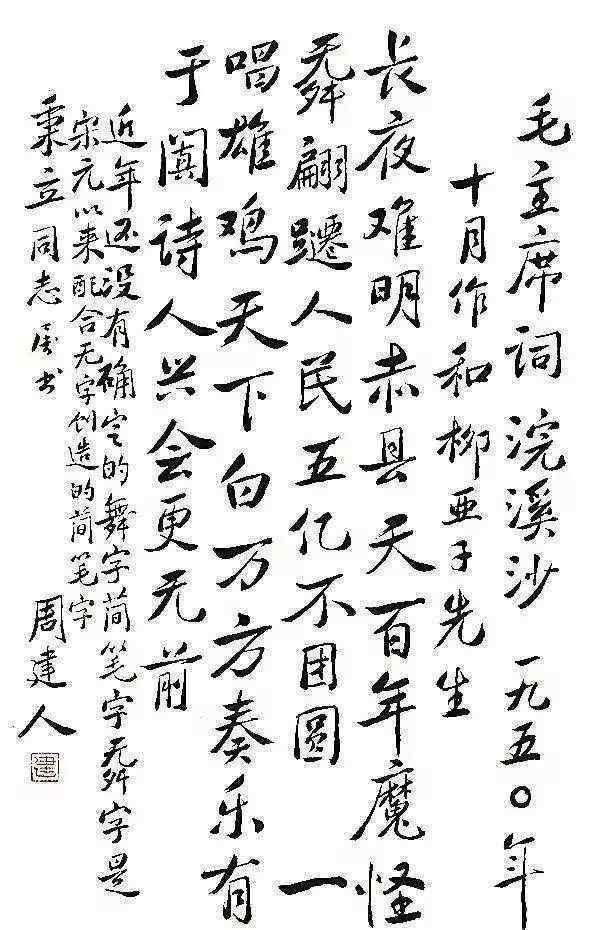 毛主席词 浣溪沙 一九五〇年
十月作和柳亚子先生
长夜难明赤县天百年魔怪
⿱无舛翩躚人民五亿不团圆 一
唱雄鸡天下白万方奏乐有
于阗诗人兴会更无前
近年还没有确定的舞字简笔字⿱无舛字是
宋元以来配合无字创造的简笔字
秉立同志属书
周建人